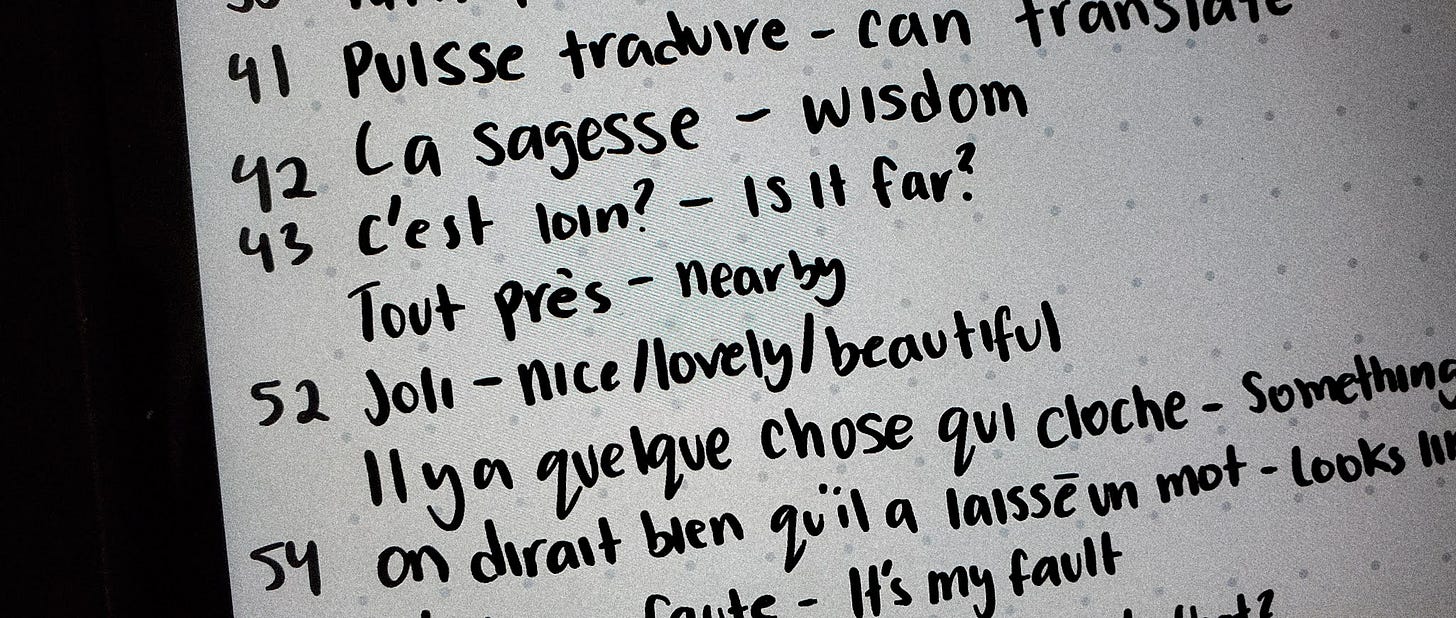 41 Puisse traduire - can translate
42 La sagesse - wisdom
43 C'est loin? - Is it far?
Tout près - nearby
52 Joli - nice/lovely/beautiful
Il y a quelque chose qui cloche - Something
54 on dirait bien qu'il a laissē un mot - Looks
faute - It's my fault